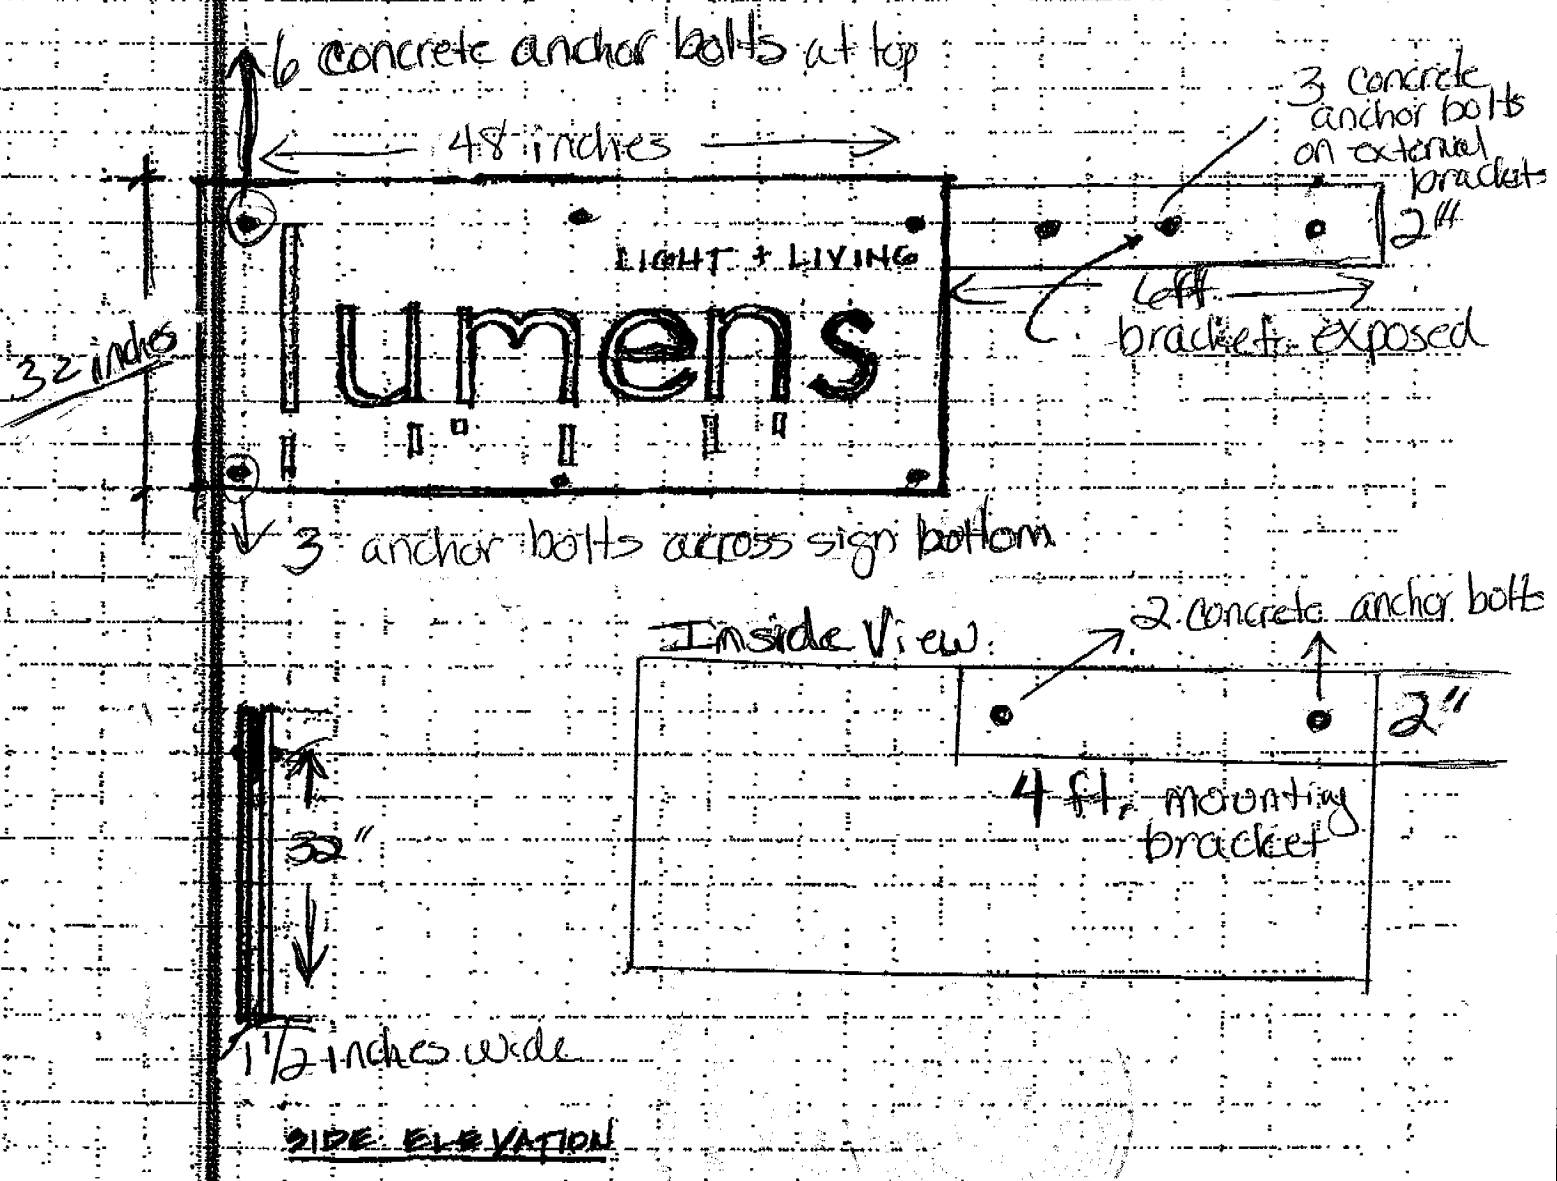 6 concrete anchor bolts at top
48 inches
3 concrete
anchor bolts
on external
brackets
2"
LIGHT + LIVING
lumens
6 ft.
bracket exposed
32 inches
3 anchor bolts across sign bottom
Inside View
2 concrete anchor bolts
2"
4 ft. mounting
bracket
32"
1 1/2 inches wide
SIDE ELEVATION